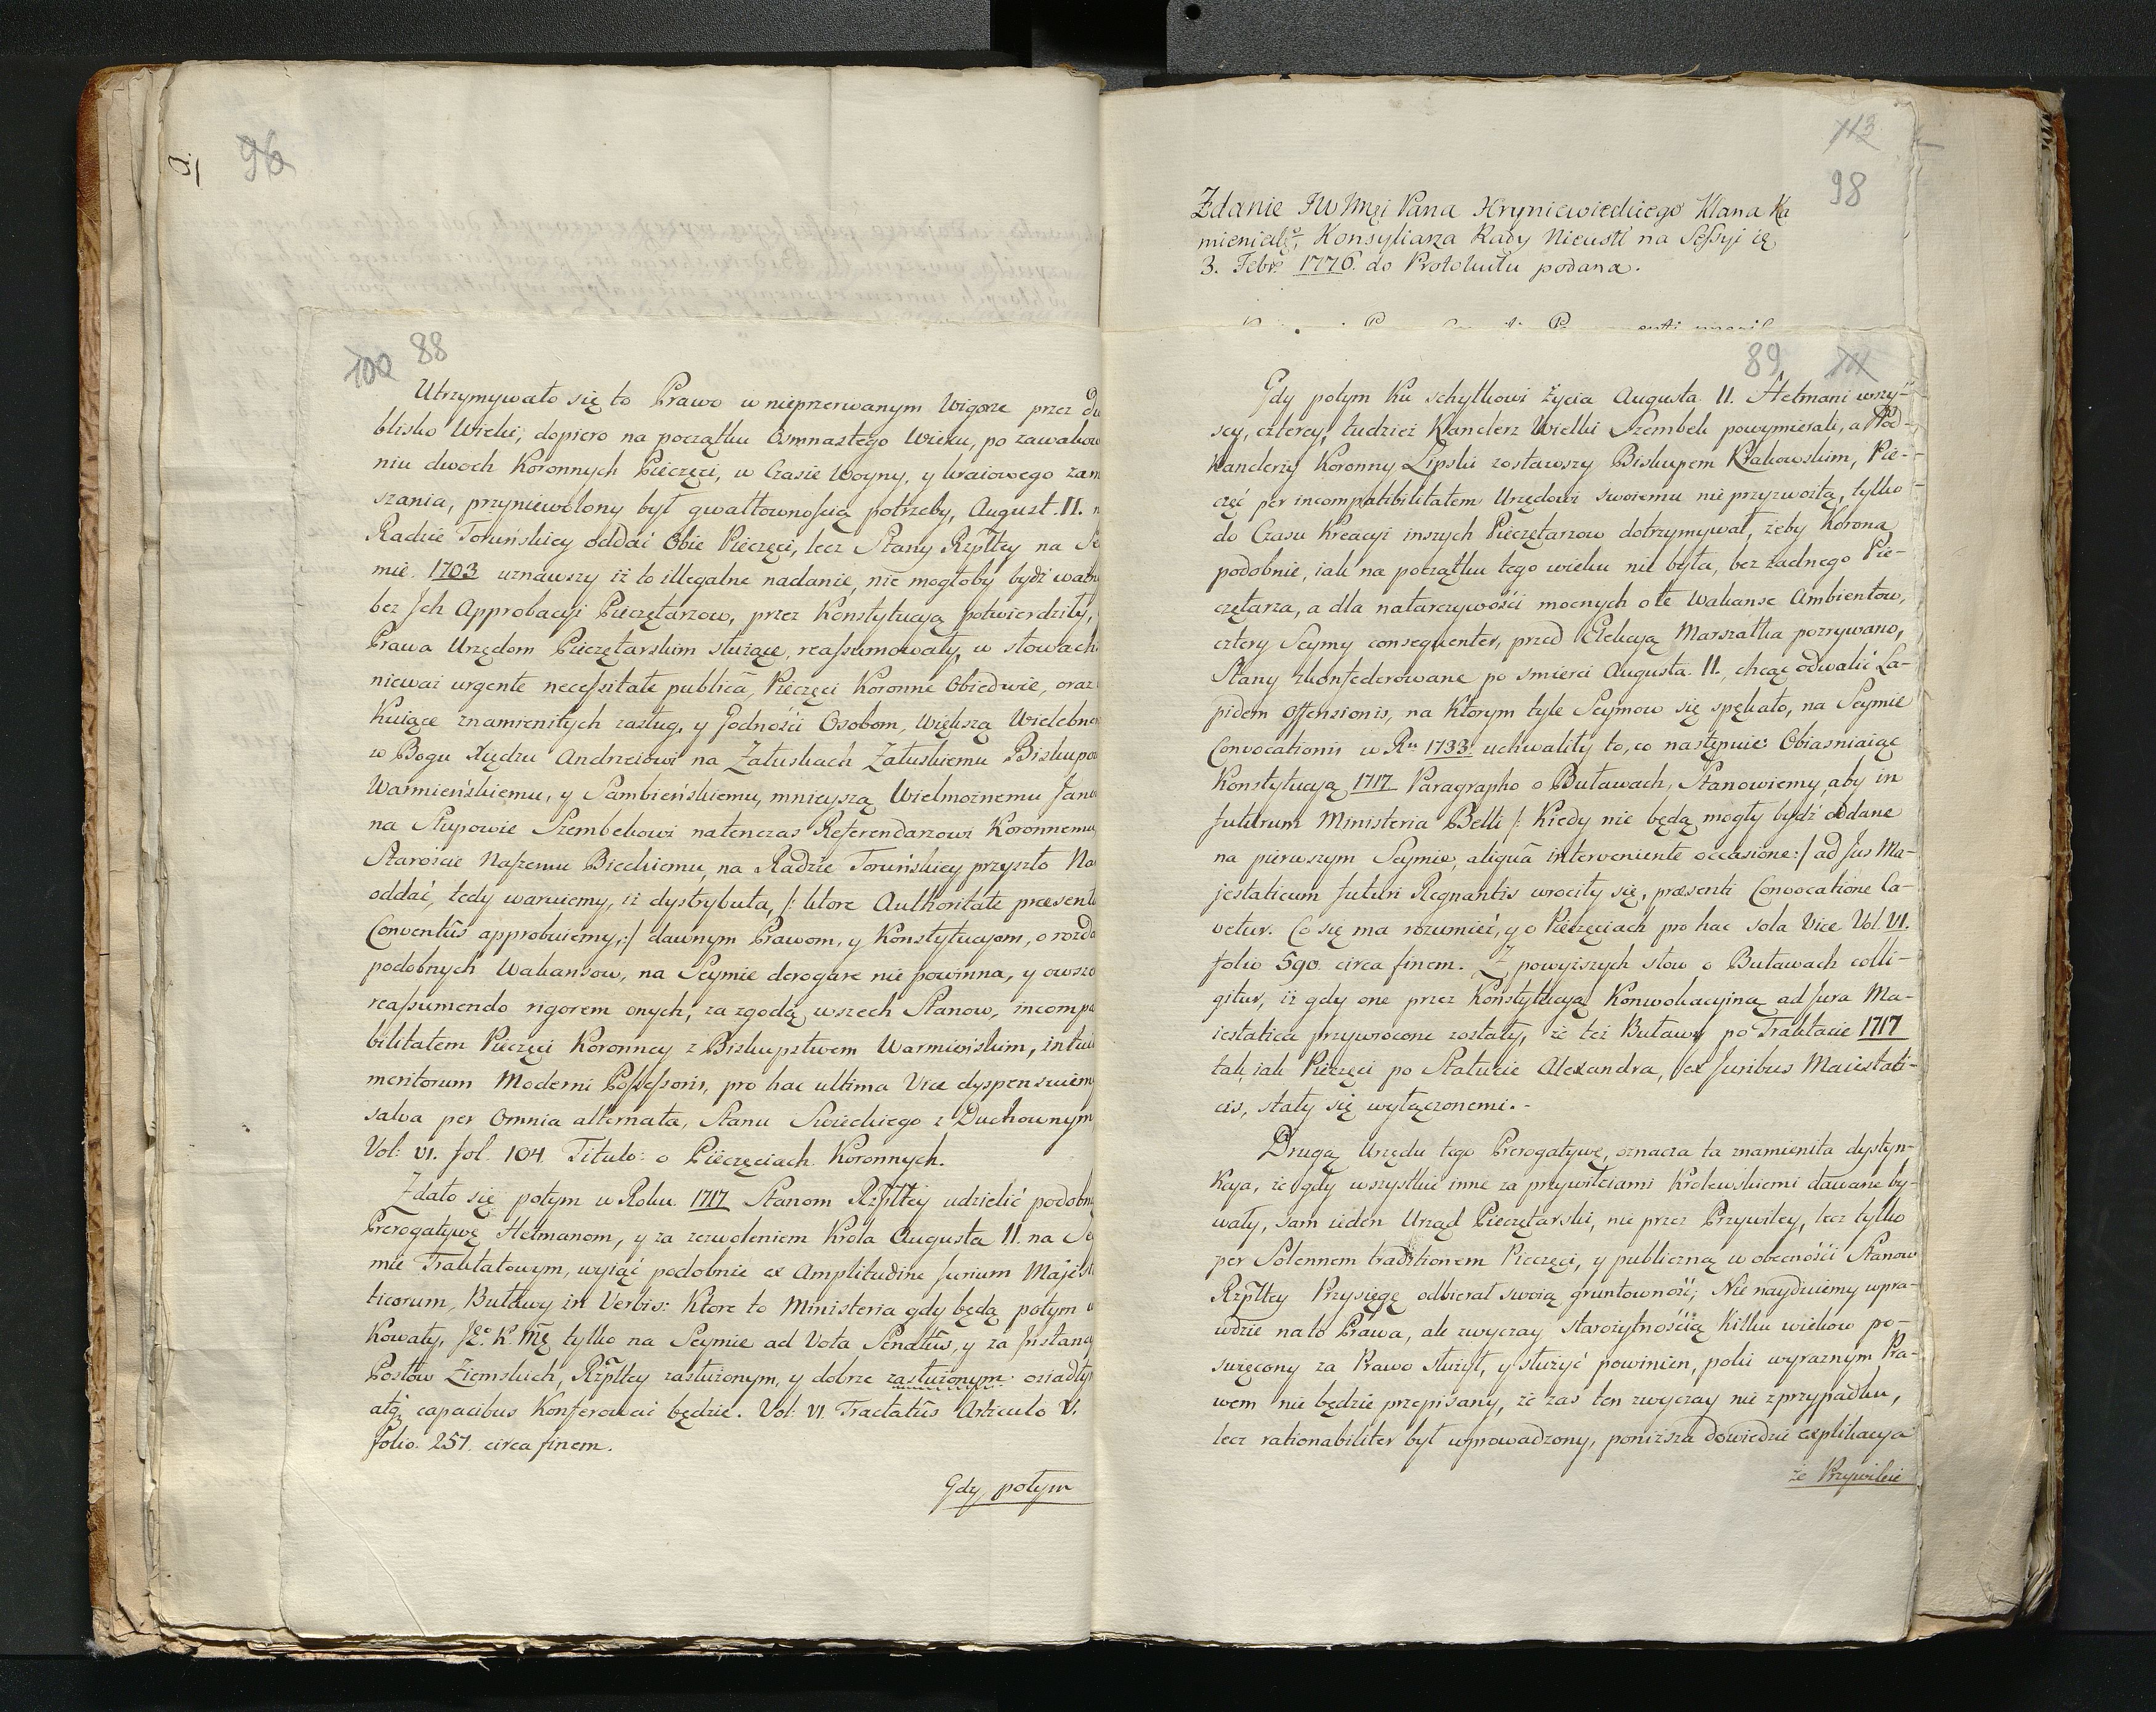 96
100 88
Utrzymywało się to Prawo w nieprzerwanym Wigorze przez
blisko Wieki, dopiero na początku Osmnastego Wieku, po zawakow
niu dwoch Koronnych Pieczęci, w Czasie Woyny, y kraiowego zam
szania, przyniewolony był gwałtownością potrzeby, August. II.
Radzie Toruńskiey oddać Obie Pieczęci, lecz Stany Rzpltey na Se
mie. 1703 uznawszy iż to illegalne nadanie, nie mogłoby bydź ważn
bez Jch Approbacyi Pieczętarzow, przez Konstytucyą potwierdziły,
Prawa Urzędom Pieczętarskim służące, reassumowały, w słowach
niewai urgente necessitate publicâ, Pieczęci Koronne Obiedwie, oraz
Kuiące znamienitych zasług, y Godności Osobom, większą Wielebne
w Bogu Xiędzu Andrzeiowi na Załuskach Załuskiemu Biskupow
Warmieńskiemu, y Sambieńskiemu, mnieyszą Wielmożnemu Jano
na Słupowie Szembekowi natenczas Referendarzowi Koronnemu,
Staroście Naszemu Bieckiemu, na Radzie Toruńskiey przyszło Na
oddać, tedy waruiemy, iż dystrybuta, /: ktore Authoritate præsenti
Conventûs approbuiemy, :/ dawnym Prawom, y Konstytucyom, o rozda
podobnych Wakansow, na Seymie derogare nie powinna, y owsze
reassumendo rigorem onych, za zgodą wszech Stanow, incompa
bilitatem Pieczęci Koronney z Biskupstwem Warmińskim, intui
meritorum Moderni Possessoris, pro hac ultima Vice dyspensuiem
salva per Omnia alternata, Stanu Swieckiego z Duchownym
Vol: VI. fol. 104. Titulo: o Pieczęciach Koronnych.
Zdało się potym w Roku 1717 Stanom Rzpltey udzielić podobn
Prerogatywę Hetmanom, y za zezwoleniem Krola Augusta II. na Se
mie Traktatowym, wyiąć podobnie ex Amplitudine Jurium Majest
ticorum, Buławy in Verbis: Ktore to Ministeria gdy będą potym
Kowały, JKo. K. Mć tylko na Seymie ad Vota Senatûs, y za Jnstanc
Posłow Ziemskich, Rzpltey zasłużonym, y dobrze zasłużonym osiadły
atq; capacibus Konferować będzie. Vol: VI. Tractatûs Articulo V.
folio. 251. circa finem.
Gdy potym
113
98
Zdanie JW Jmci Pana Hryniewieckiego Kllana Ka
mienickgo, Konsyliarza Rady Nieusti na Sessyi
3. Febr. 1776. do Protokułu podana.
89
Gdy potym ku schyłkowi życia Augusta II. Hetmani wszy-
scy, czterey, tudzież Kanclerz Wielki Szembek powymierali, a Pod-
kanclerzy Koronny Lipski zostawszy Biskupem Krakowskim, Pie-
częć per incompatibilitatem Urzędowi swoiemu nie przyzwoitą, tylko
do Czasu Kreacyi inszych Pieczętarzow dotrzymywał, żeby Korona
podobnie, iak na początku tego wieku nie była, bez żadnego Pie-
czętarza, a dla natarczywości mocnych o te Wakanse Ambientow,
cztery Seymy consequenter, przed Elekcyą Marszałka pozrywano,
Stany zkonfederowane po smierci Augusta. II., chcąc odwalić La-
pidem Offensionis, na Ktorym tyle Seymow się spękało, na Seymie
Convocationis w Ru 1733. uchwaliły to, co następuie: Obiasniaiąc
Konstytucyą 1717 Paragrapho o Buławach, Stanowiemy, aby in
futurum Ministeria Belli /: Kiedy nie będą mogły bydź oddane
na pierwszym Seymie, aliquâ interveniente occasione :/ ad Jus Ma-
jestaticum futuri Regnantis wrociły się, præsenti Convocatione Ca-
vetur. Co się ma rozumieć, y o Pieczęciach pro hac sola Vice. Vol. VI.
folio 590. circa finem. Z powyższych słow o Buławach colli-
gitur, iż gdy one przez Konstytucyą Konwokacyiną ad Jura Ma-
iestatica przywrocone zostały, że też Buławy po Traktacie 1717
tak, iak Pieczęci po Statucie Alexandra, ex Juribus Maiestati-
cis, stały się wyłączonemi.-
Drugą Urzędu tego Prerogatywę, oznacza ta znamienita dystyn-
kcya, że gdy wszystkie inne za przywileiami Krolewskiemi dawane by-
wały, sam ieden Urząd Pieczętarski, nie przez Przywiley, lecz tylko
per Solennem traditionem Pieczęci, y publiczną w obecności Stanow
Rzpltey Przysięgę odbierał swoią gruntowność; Nie nayduiemy wpra-
wdzie na to Prawa, ale zwyczay starożytnością kilku wiekow po-
święcony za Prawo służył, y służyć powinien, poki wyraznym Pra-
wem nie będzie przepisany, że zas ten zwyczay nie z przypadku,
lecz rationabiliter był wprowadzony, poniższa dowiedzie explikacya
że Przywileie